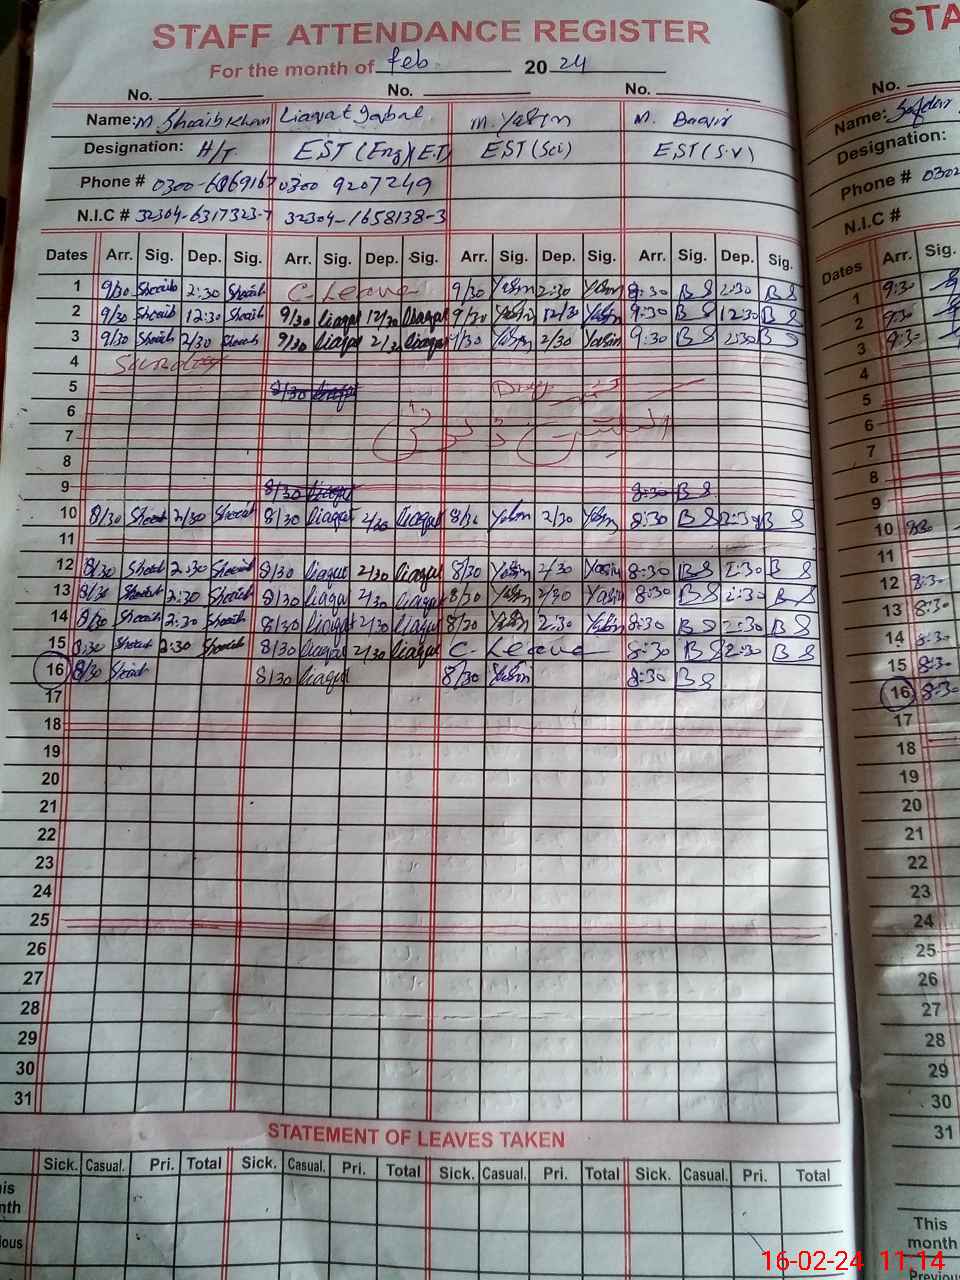 STAFF ATTENDANCE REGISTER
For the month of feb 20 24
No. No. No.
Name: M. Shoaib Khan Liaqat Iqbal M. Yasin M. 
Designation: H/T EST (Eng)(E.T) EST (Sci) EST (S.V)
Phone # 0300 9207249
N.I.C # 32304-6317323-7 32304-1658138-3
Dates Arr. Sig. Dep. Sig. Arr. Sig. Dep. Sig. Arr. Sig. Dep. Sig. Arr. Sig. Dep. Sig.
1 9/30 Shoaib 2:30 Shoaib C-Leave 9/30 Yasin 2:30 Yasin 9:30 BS 2:30 BS
2 9/30 Shoaib 12:30 Shoaib 9/30 Liaqat 12/30 Liaqat 9/30 Yasin 12/30 Yasin 9:30 BS 12:30 BS
3 9/30 Shoaib 2/30 Shoaib 9/30 Liaqat 2/30 Liaqat 9/30 Yasin 2/30 Yasin 9:30 BS 2:30 BS
4 Sunday
5 8/30 Liaqat
6
7
8
9 8/30 Liaqat 8:30 BS
10 8/30 Shoaib 2/30 Shoaib 8/30 Liaqat 2/30 Liaqat 8/30 Yasin 2/30 Yasin 8:30 BS 2:30 BS
11
12 8/30 Shoaib 2:30 Shoaib 8/30 Liaqat 2/30 Liaqat 8/30 Yasin 2/30 Yasin 8:30 BS 2:30 BS
13 8/30 Shoaib 2:30 Shoaib 8/30 Liaqat 2/30 Liaqat 8/30 Yasin 2/30 Yasin 8:30 BS 2:30 BS
14 8/30 Shoaib 2:30 Shoaib 8/30 Liaqat 2/30 Liaqat 8/30 Yasin 2:30 Yasin 8:30 BS 2:30 BS
15 8:30 Shoaib 2:30 Shoaib 8/30 Liaqat 2/30 Liaqat C-Leave 8:30 BS 2:30 BS
16 8/30 Shoaib 8/30 Liaqat 8/30 Yasin 8:30 BS
17
18
19
20
21
22
23
24
25
26
27
28
29
30
31
STATEMENT OF LEAVES TAKEN
Sick. Casual. Pri. Total Sick. Casual. Pri. Total Sick. Casual. Pri. Total Sick. Casual. Pri. Total
STA
No.
Name: Safdar
Designation:
Phone # 0302
N.I.C #
Dates Arr. Sig.
1 9:30
2 9:30
3 9:30
4
5
6
7
8
9
10 8:30
11
12 8:30
13 8:30
14 8:30
15 8:30
16 8:30
17
18
19
20
21
22
23
24
25
26
27
28
29
30
31
This
month
Previous
16-02-24 11:14